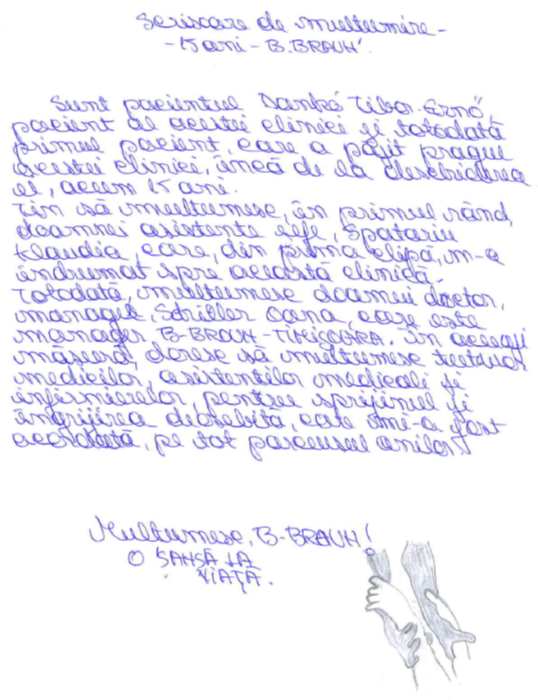 Scrisoare de multumire -
- 15 ani - B. BRAUN.
Sunt pacientul Dankó Tibor-Ernö,
pacient al acestei clinici și totodată
primul pacient, care a pășit pragul
acestei clinici, încă de la deschiderea
ei, acum 15 ani.
Țin să mulțumesc, în primul rând,
doamnei asistente șefe, Spatariu
Klaudia, care, din prima clipă, m-a
îndrumat spre această clinică.
Totodată, mulțumesc doamnei doctor,
manager, Schiller Oana, care este
manager B-BRAUN-TIMIȘOARA. În aceeași
măsură, doresc să mulțumesc tuturor
medicilor, asistenților medicali și
infirmierelor, pentru sprijinul și
îngrijirea deosebită, care mi-a fost
acordată, pe tot parcursul anilor.
Mulțumesc, B-BRAUN!
O ȘANSĂ LA
VIAȚĂ.